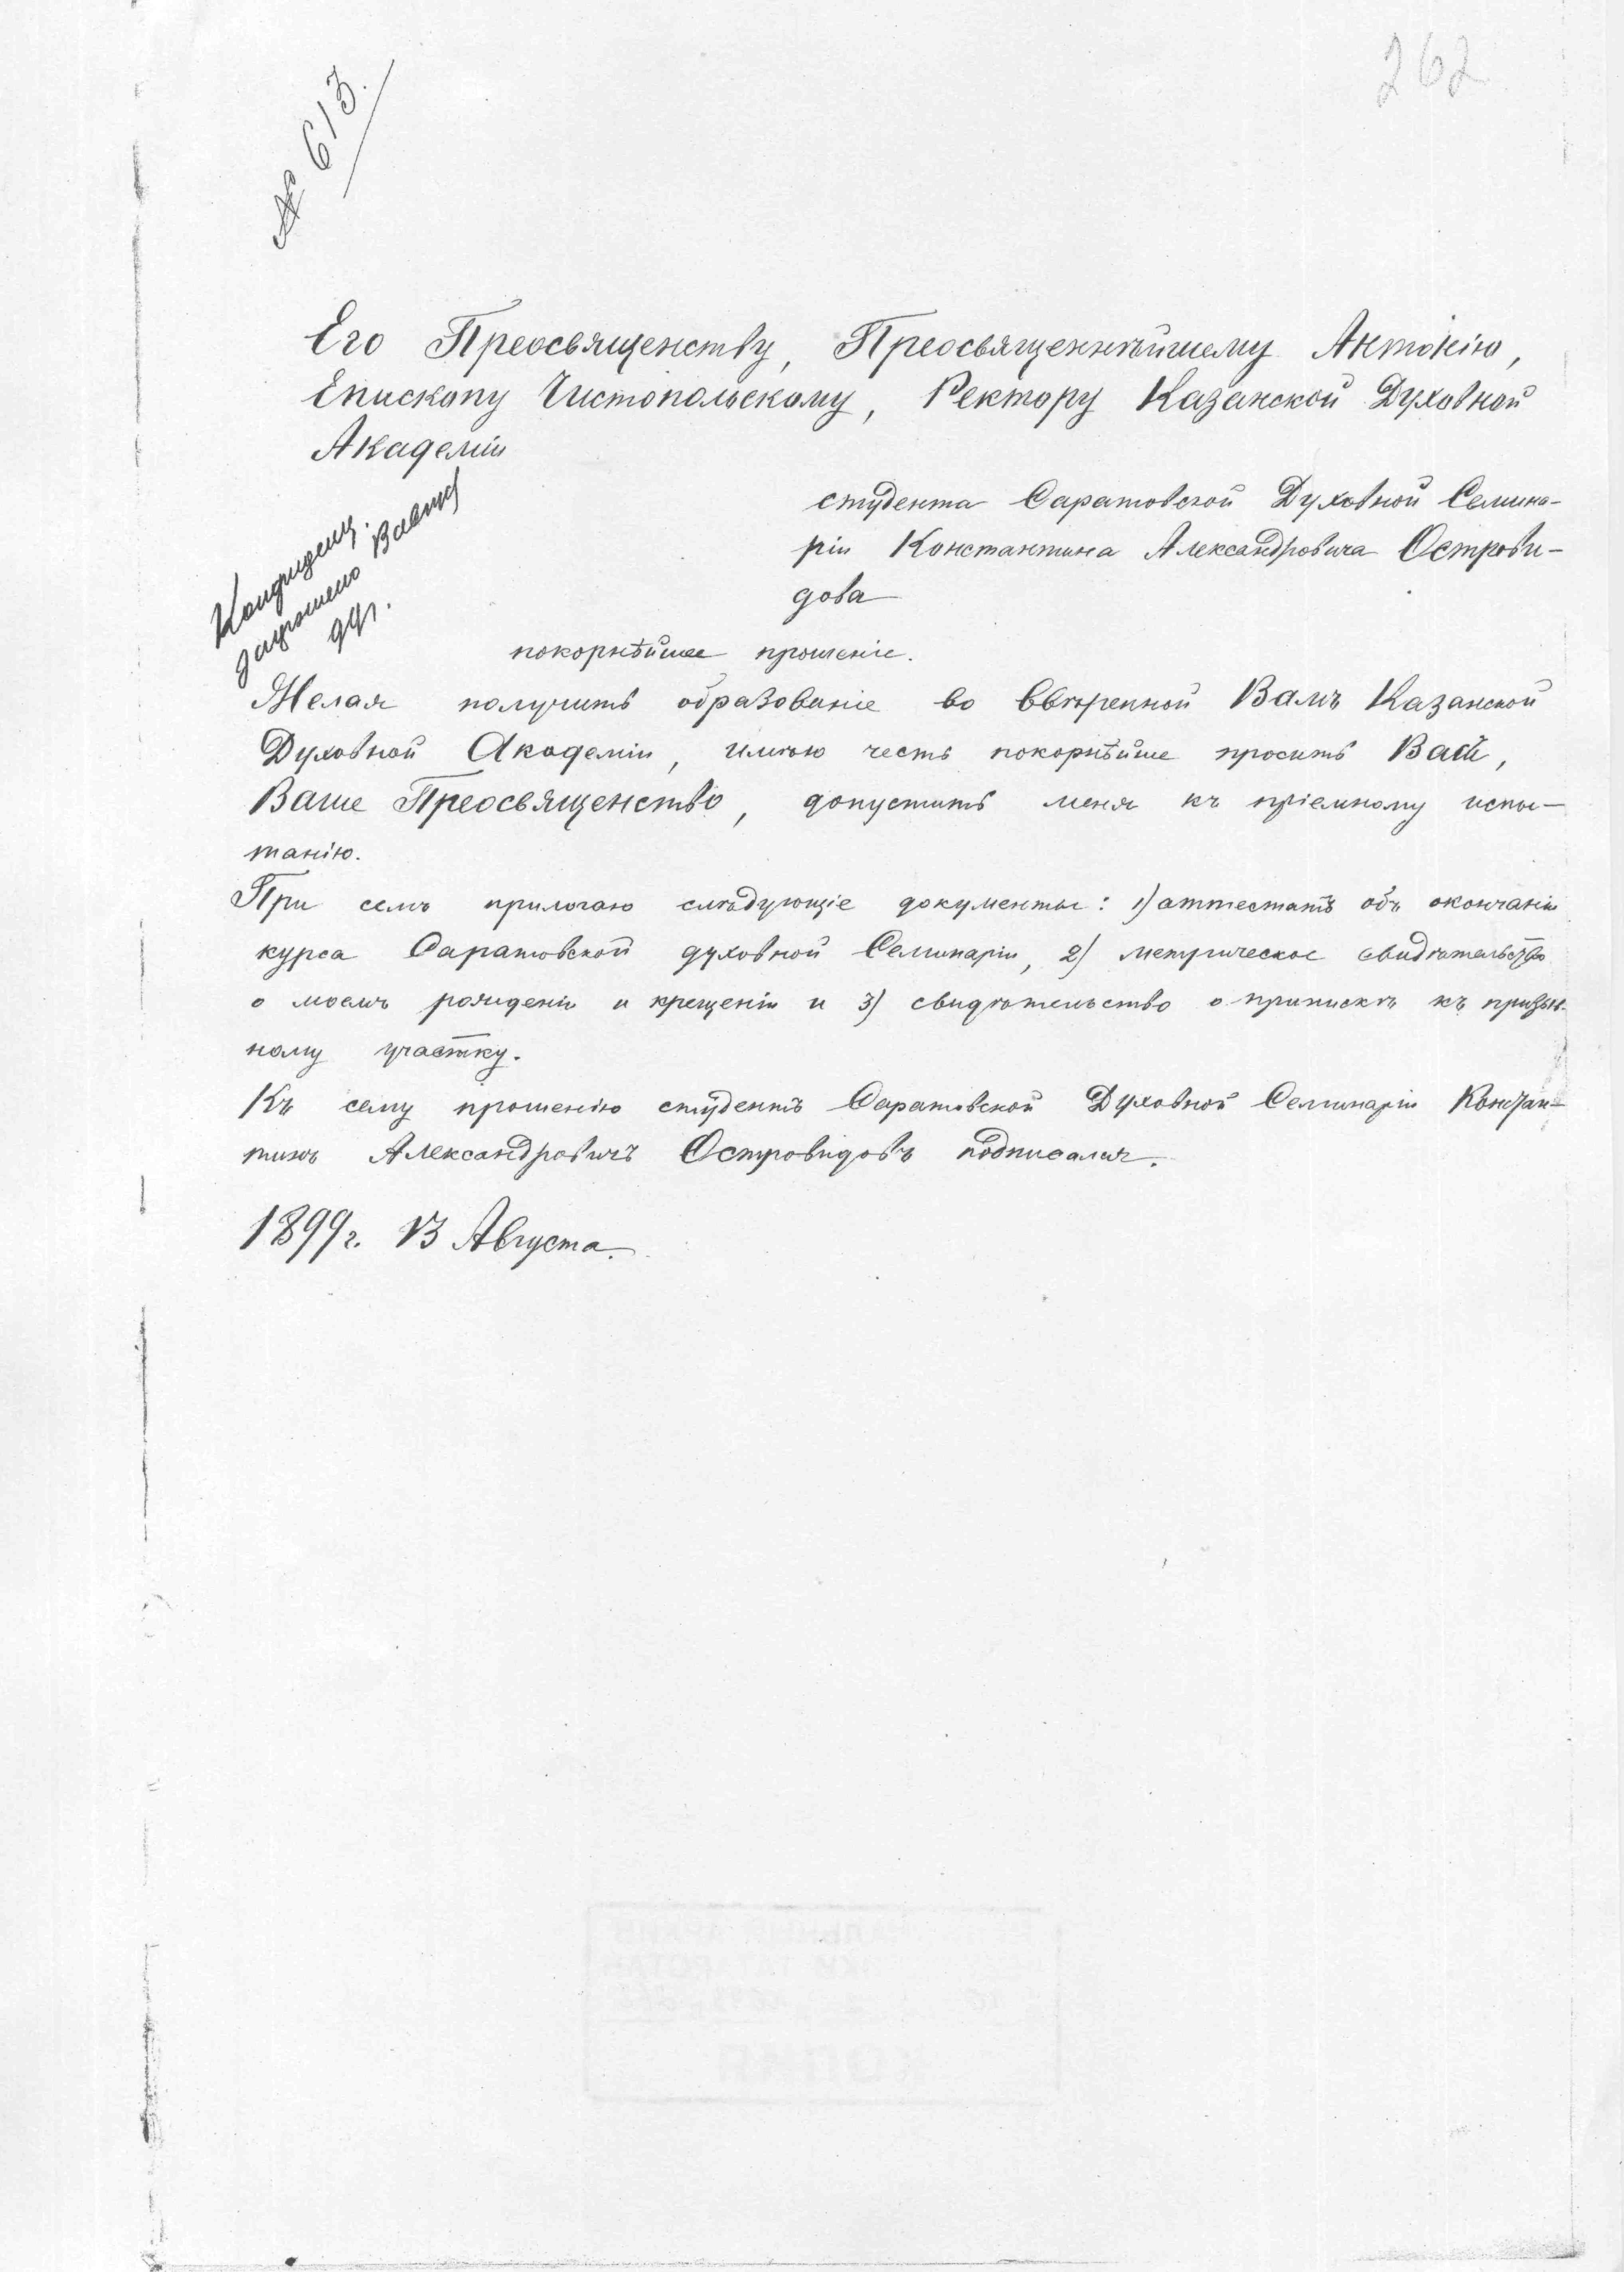 262
№ 613.
Его Преосвященству, Преосвященнѣйшему Антонію,
Епископу Чистопольскому, Ректору Казанской Духовной
Академіи
студента Саратовской Духовной Семина-
ріи Константина Александровича Острови-
дова
покорнѣйшее прошеніе.
Желая получить образованіе во ввѣренной Вамъ Казанской
Духовной Академіи, имѣю честь покорнѣйше просить Васъ,
Ваше Преосвященство, допустить меня къ пріемному испы-
танію.
При семъ прилагаю слѣдующіе документы: 1) аттестатъ объ окончаніи
курса Саратовской духовной Семинаріи, 2) метрическое свидѣтельство
о моемъ рожденіи и крещеніи и 3) свидѣтельство о припискѣ къ призыв-
ному участку.
Къ сему прошенію студентъ Саратовской Духовной Семинаріи Констан-
тинъ Александровичъ Островидовъ подписался.
1899 г. 13 Августа.